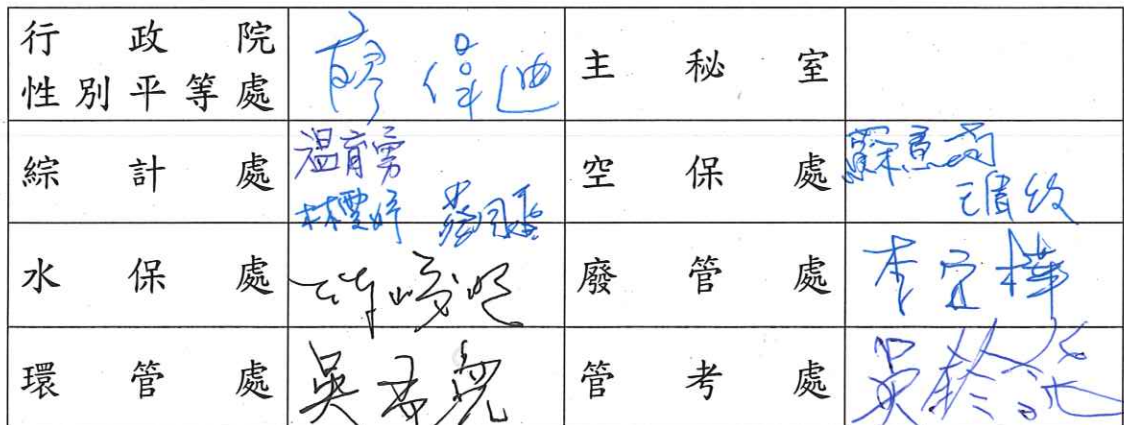 行政院
性別平等處 廖偉迪 主秘室
綜計處 溫育勇 空保處 蘇意筠
林雲婷
水保處 廢管處 李宜樺
環管處 吳 管考處 吳鈴